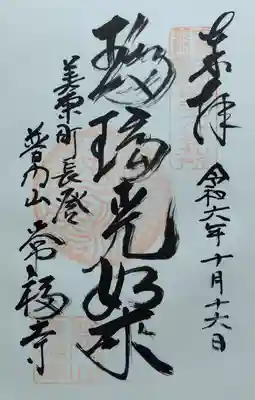 奉拝
令和六年十月十六日
瑠璃光如来
美東町長登
普門山 常福寺